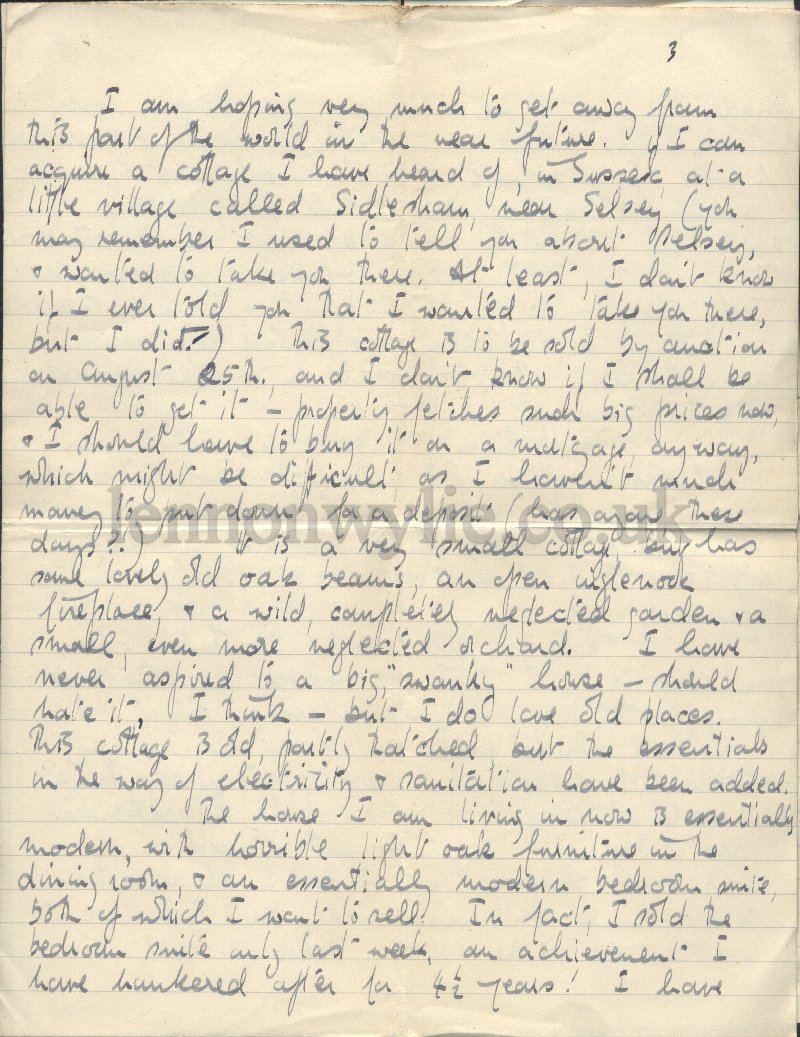 3
I am hoping very much to get away from
this part of the world in the near future. If I can
acquire a cottage I have heard of, in Sussex, at a
little village called Sidlesham, near Selsey (you
may remember I used to tell you about Selsey,
& wanted to take you there. At least, I don't know
if I ever told you that I wanted to take you there,
but I did.) This cottage is to be sold by auction
on August 25th, and I don't know if I shall be
able to get it – property fetches such big prices now,
& I should have to buy it on a mortgage, anyway,
which might be difficult as I haven't much
money to put down for a deposit (has anyone these
days?.) It is a very small cottage, but has
some lovely old oak beams, an open inglenook
fireplace, & a wild, completely neglected garden & a
small, even more neglected orchard. I have
never aspired to a big, "swanky" house – should
hate it, I think – but I do love old places.
This cottage is old, partly thatched but the essentials
in the way of electricity & sanitation have been added.
The house I am living in now is essentially
modern, with horrible light oak furniture in the
dining room, & an essentially modern bedroom suite,
both of which I want to sell. In fact, I sold the
bedroom suite only last week, an achievement I
have hankered after for 4½ years! I have
lennonwylie.co.uk